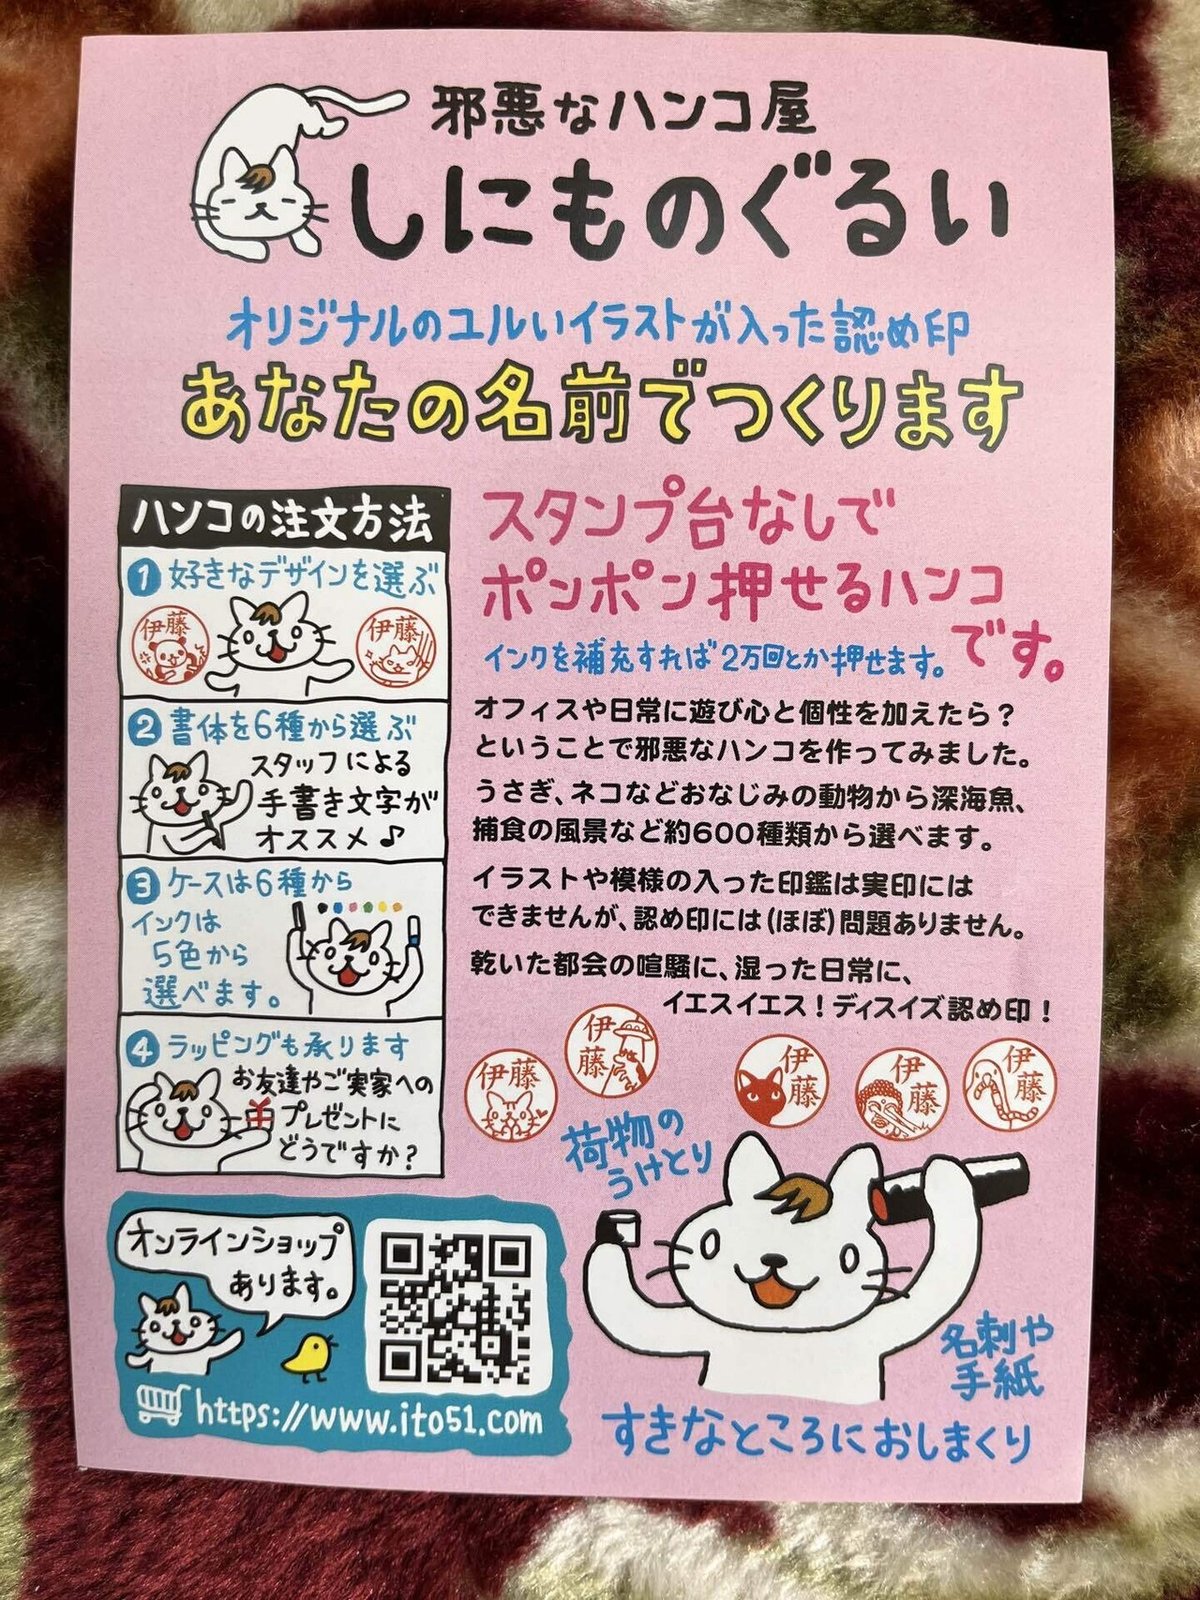 邪悪なハンコ屋
しにものぐるい
オリジナルのユルいイラストが入った認め印
あなたの名前でつくります
ハンコの注文方法
1 好きなデザインを選ぶ
伊藤
伊藤
2 書体を6種から選ぶ
スタッフによる
手書き文字が
オススメ♪
3 ケースは6種から
インクは
5色から
選べます。
4 ラッピングも承ります
お友達やご実家への
プレゼントに
どうですか?
スタンプ台なしで
ポンポン押せるハンコ
です。
インクを補充すれば2万回とか押せます。
オフィスや日常に遊び心と個性を加えたら?
ということで邪悪なハンコを作ってみました。
うさぎ、ネコなどおなじみの動物から深海魚、
捕食の風景など約600種類から選べます。
イラストや模様の入った印鑑は実印には
できませんが、認め印には(ほぼ)問題ありません。
乾いた都会の喧騒に、湿った日常に、
イエスイエス!ディスイズ認め印!
伊藤
伊藤
伊藤
伊藤
伊藤
荷物の
うけとり
名刺や
手紙
すきなところにおしまくり
オンラインショップ
あります。
https://www.ito51.com